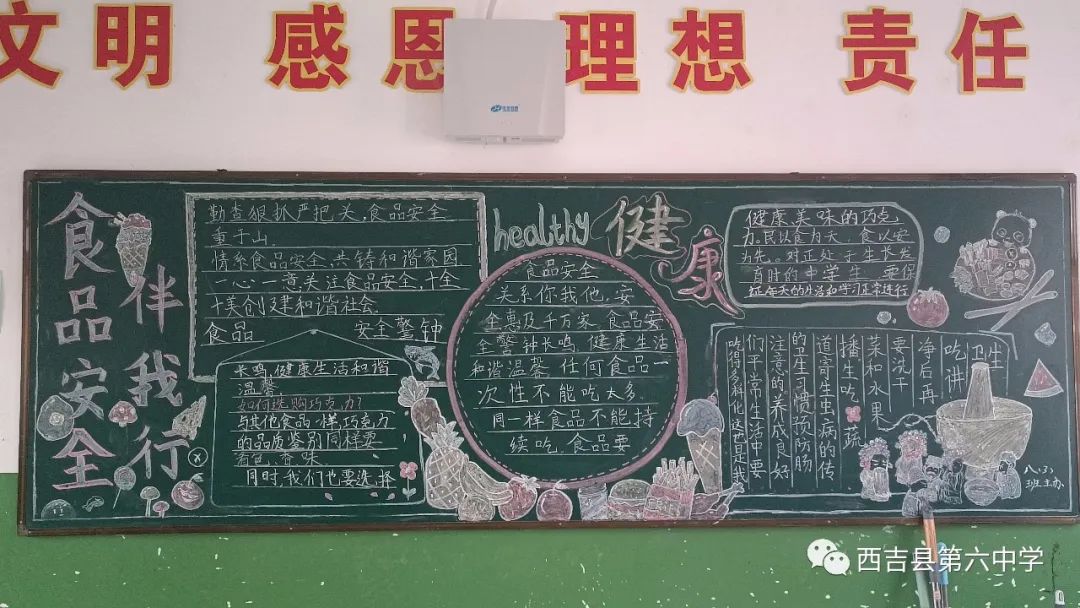 文明 感恩 理想 责任
食品安全
伴我行
勤查狠抓严把关,食品安全
重于山.
情系食品安全,共铸和谐家园
一心一意关注食品安全,十全
十美创建和谐社会
食品 安全警钟
长鸣,健康生活和谐
温馨
如何选购巧克力?
与其他食品一样,巧克力
的品质鉴别同样要
看色、香、味
同时,我们也要选择
healthy 健康
食品安全
关系你我他,安
全惠及千万家,食品安
全警钟长鸣,健康生活
和谐温馨 任何食品一
次性不能吃太多.
同一样食品不能持
续吃.食品要
健康美味的巧克
力.民以食为天,食以安
为先。对正处于生长发
育时的中学生,要保
证每天的生活和学习正常进行
卫生
吃讲
净后再
要洗干
菜和水果
播生吃蔬
道寄生虫病的传
的卫生习惯预防肠
注意的养成良好
们平常生活中要
吃得多样化这也是我
八(3)
班主办
西吉县第六中学